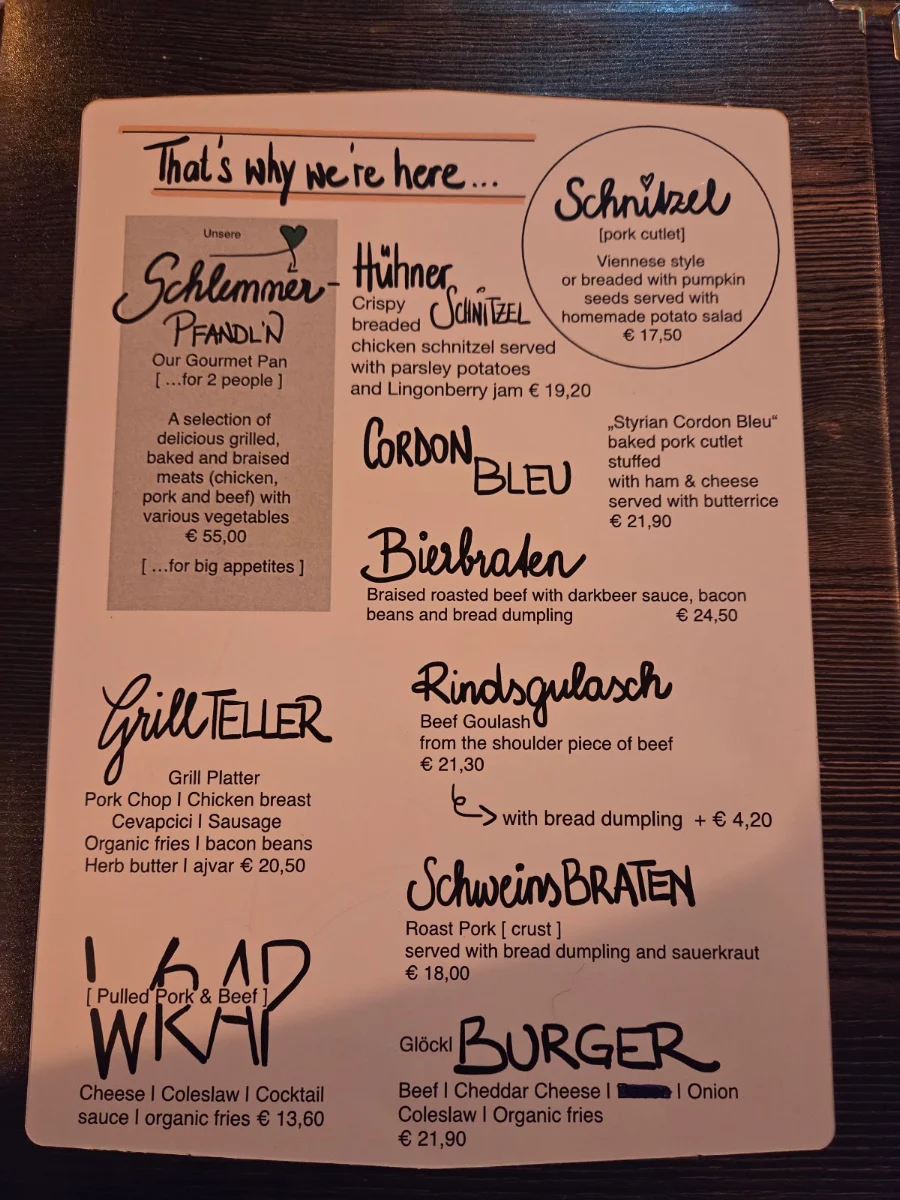 That's why we're here...
Unsere
Schlemmer-
PFANDL'N
Our Gourmet Pan
[ ...for 2 people ]
A selection of
delicious grilled,
baked and braised
meats (chicken,
pork and beef) with
various vegetables
€ 55,00
[ ...for big appetites ]
Hühner
SCHNITZEL
Crispy
breaded
chicken schnitzel served
with parsley potatoes
and Lingonberry jam € 19,20
Schnitzel
[pork cutlet]
Viennese style
or breaded with pumpkin
seeds served with
homemade potato salad
€ 17,50
CORDON
BLEU
„Styrian Cordon Bleu“
baked pork cutlet
stuffed
with ham & cheese
served with butterrice
€ 21,90
Bierbraten
Braised roasted beef with darkbeer sauce, bacon
beans and bread dumpling € 24,50
Grill TELLER
Grill Platter
Pork Chop I Chicken breast
Cevapcici I Sausage
Organic fries I bacon beans
Herb butter I ajvar € 20,50
Rindsgulasch
Beef Goulash
from the shoulder piece of beef
€ 21,30
with bread dumpling + € 4,20
SchweinsBRATEN
Roast Pork [ crust ]
served with bread dumpling and sauerkraut
€ 18,00
WRAP
[ Pulled Pork & Beef ]
Cheese I Coleslaw I Cocktail
sauce I organic fries € 13,60
Glöckl BURGER
Beef I Cheddar Cheese I I Onion
Coleslaw I Organic fries
€ 21,90